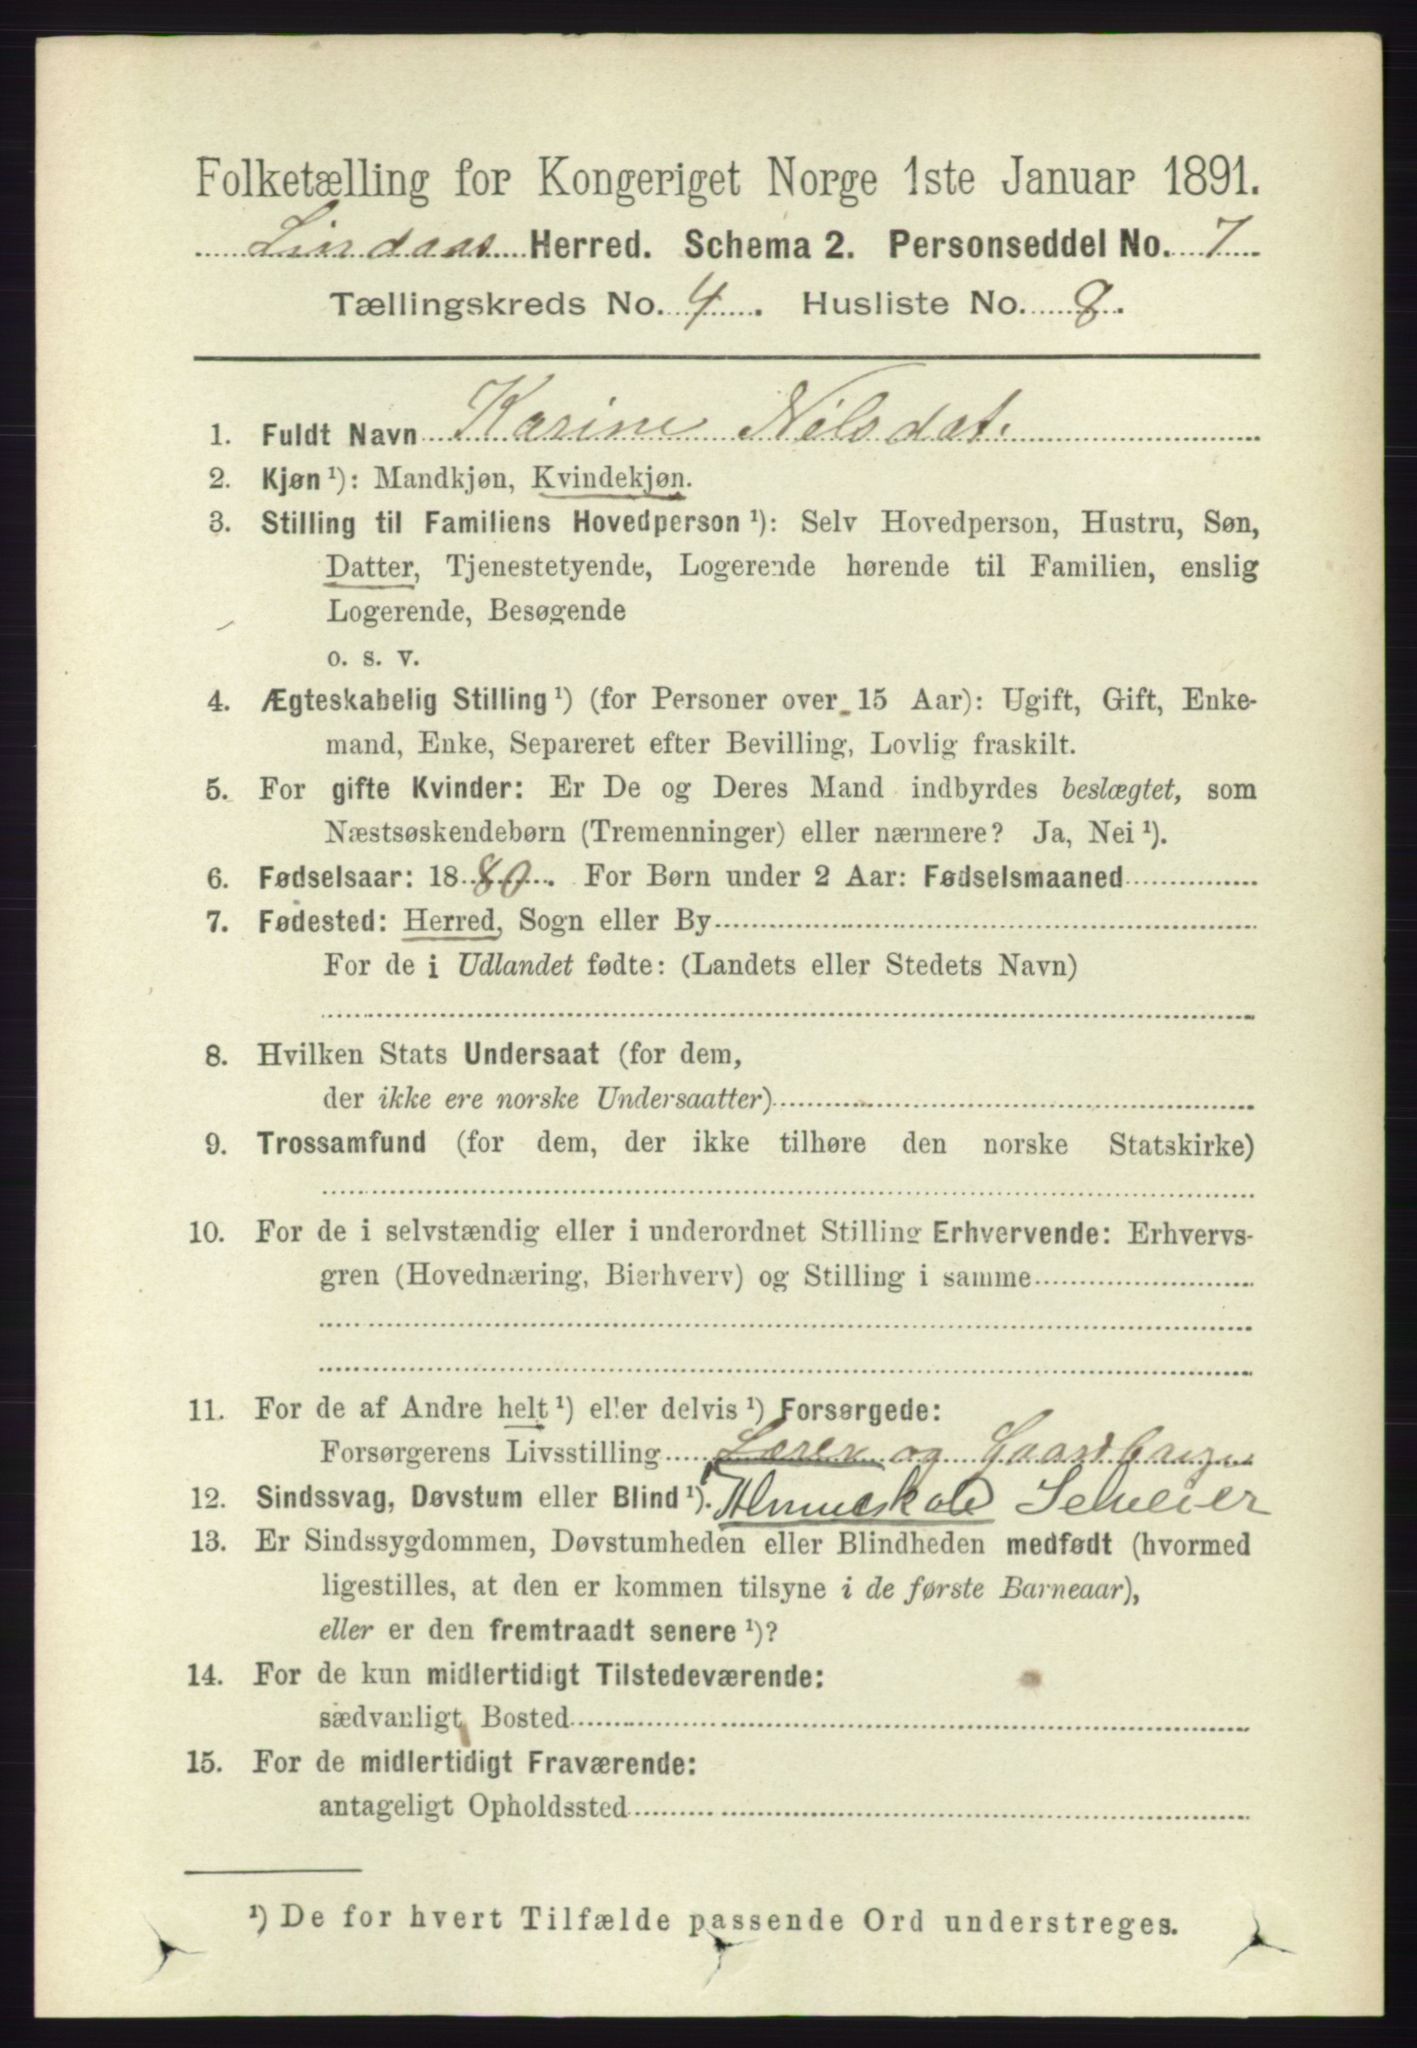 Folketælling for Kongeriget Norge 1ste Januar 1891.
Lindaas Herred. Schema 2. Personseddel No. 7
Tællingskreds No. 4. Husliste No. 8.
1. Fuldt Navn Karine Nilsdat.
2. Kjøn ¹): Mandkjøn, Kvindekjøn.
3. Stilling til Familiens Hovedperson ¹): Selv Hovedperson, Hustru, Søn,
Datter, Tjenestetyende, Logerende hørende til Familien, enslig
Logerende, Besøgende
o. s. v.
4. Ægteskabelig Stilling ¹) (for Personer over 15 Aar): Ugift, Gift, Enke-
mand, Enke, Separeret efter Bevilling, Lovlig fraskilt.
5. For gifte Kvinder: Er De og Deres Mand indbyrdes beslægtet, som
Næstsøskendebørn (Tremenninger) eller nærmere? Ja, Nei ¹).
6. Fødselsaar: 1880. For Børn under 2 Aar: Fødselsmaaned
7. Fødested: Herred, Sogn eller By
For de i Udlandet fødte: (Landets eller Stedets Navn)
8. Hvilken Stats Undersaat (for dem,
der ikke ere norske Undersaatter)
9. Trossamfund (for dem, der ikke tilhøre den norske Statskirke)
10. For de i selvstændig eller i underordnet Stilling Erhvervende: Erhvervs-
gren (Hovednæring, Bierhverv) og Stilling i samme
11. For de af Andre helt ¹) eller delvis ¹) Forsørgede:
Forsørgerens Livsstilling Lærer og Gaardbruger
12. Sindssvag, Døvstum eller Blind ¹). Almueskole Seleier
13. Er Sindssygdommen, Døvstumheden eller Blindheden medfødt (hvormed
ligestilles, at den er kommen tilsyne i de første Barneaar),
eller er den fremtraadt senere ¹)?
14. For de kun midlertidigt Tilstedeværende:
sædvanligt Bosted
15. For de midlertidigt Fraværende:
antageligt Opholdssted
¹) De for hvert Tilfælde passende Ord understreges.